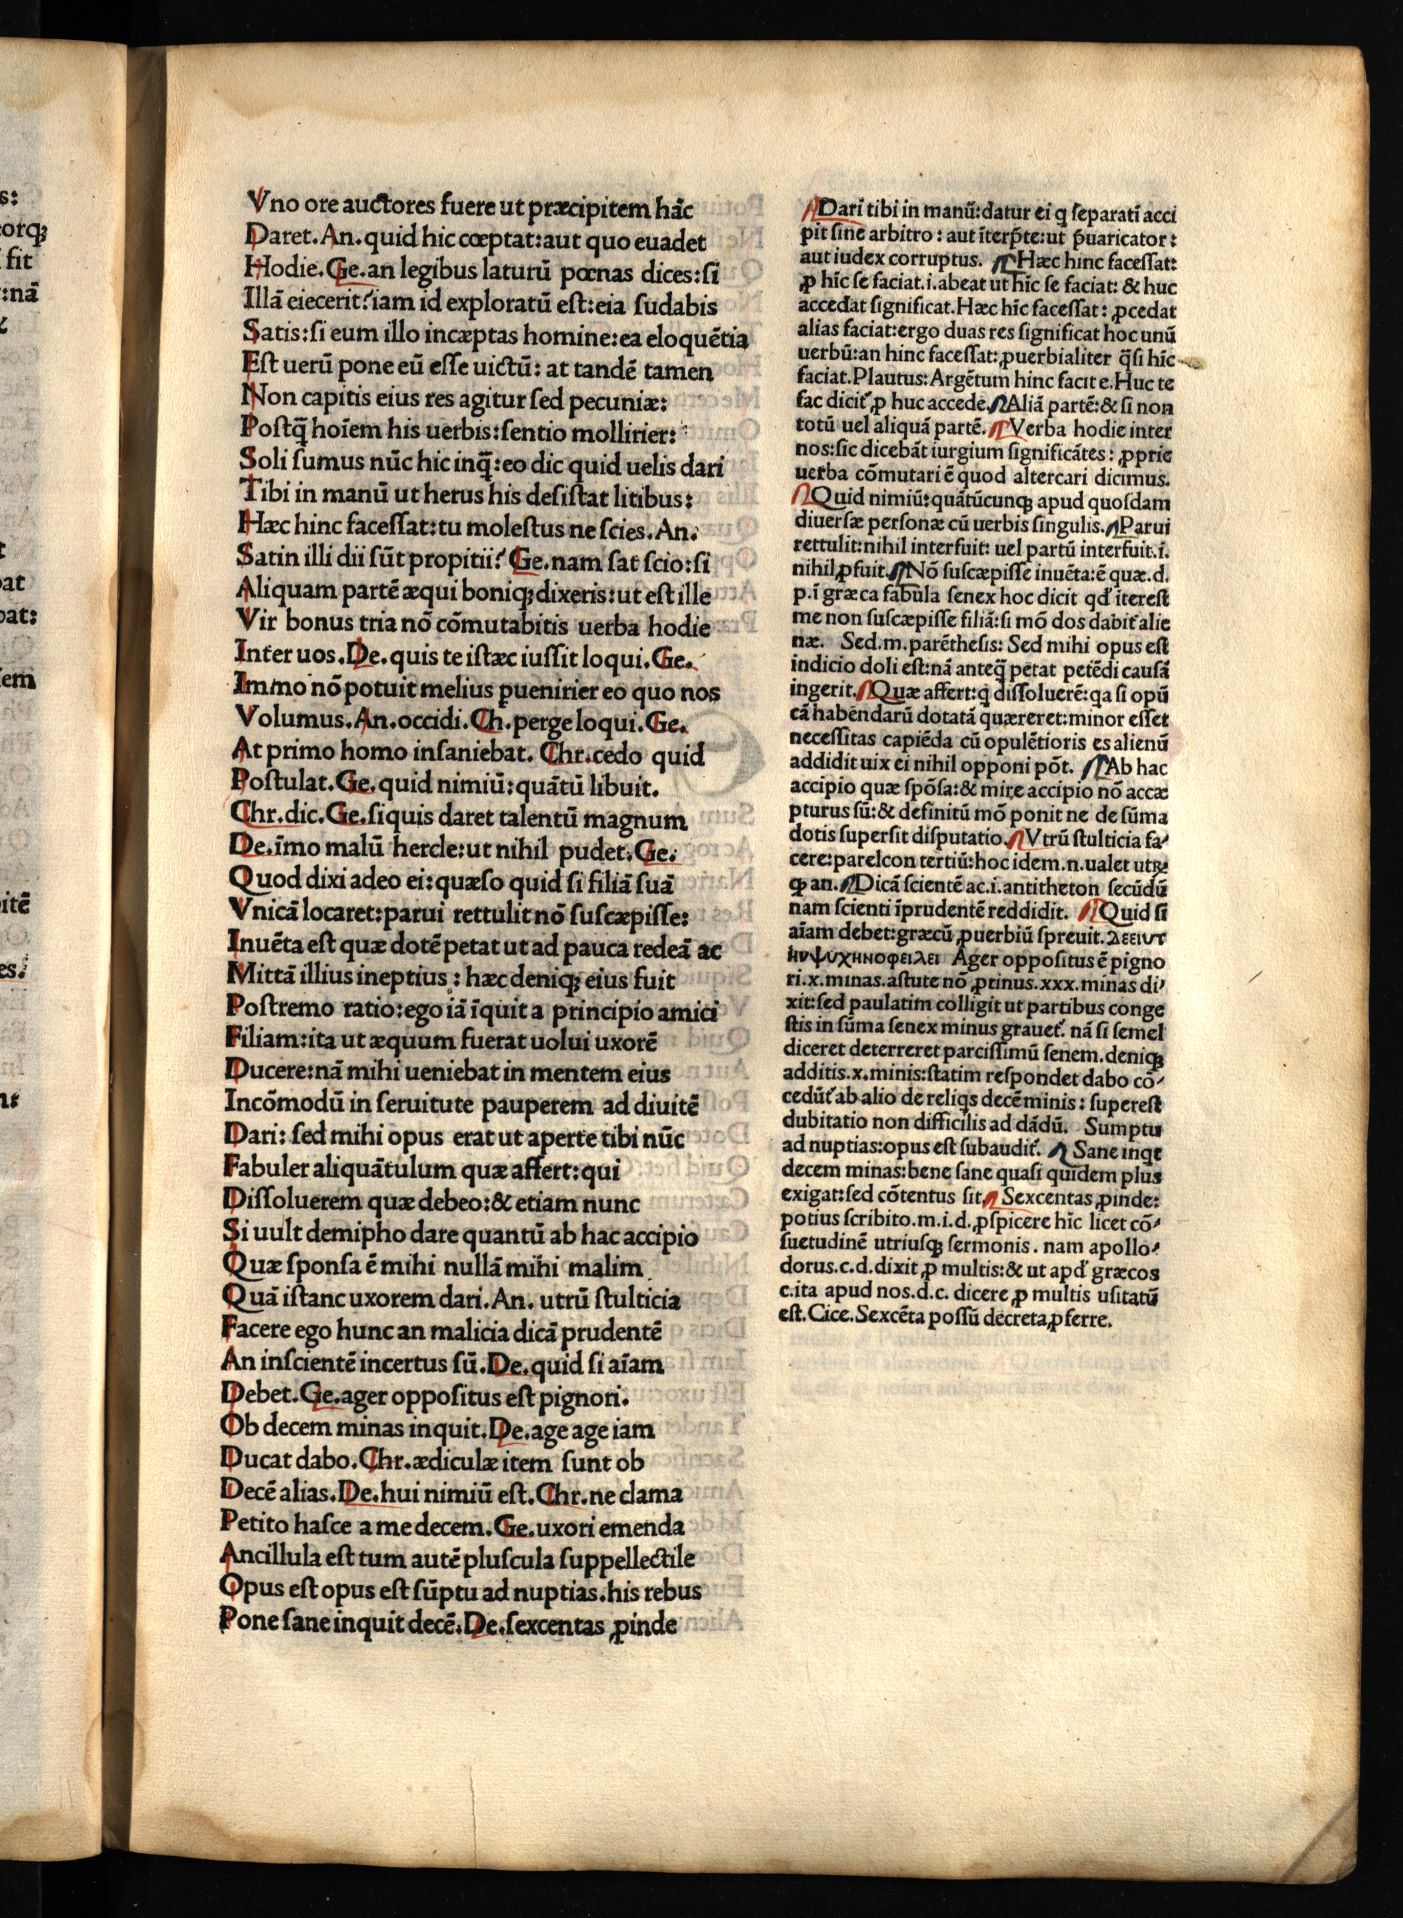 Vno ore auctores fuere ut præcipitem hãc
Daret.An.quid hic cœptat:aut quo euadet
Hodie.Ge.an legibus laturũ pœnas dices:ſi
Illã eiecerit?iam id exploratũ eſt:eia ſudabis
Satis:ſi eum illo incæptas homine:ea eloquẽtia
Eſt uerũ pone eũ eſſe uictũ: at tandẽ tamen
Non capitis eius res agitur ſed pecuniæ:
Poſtq̃ hoĩem his uerbis:ſentio mollirier:
Soli ſumus nũc hic inq̃:eo dic quid uelis dari
Tibi in manũ ut herus his deſiſtat litibus:
Hæc hinc faceſſat:tu moleſtus ne ſcies.An.
Satin illi dii ſũt propitii?Ge.nam ſat ſcio:ſi
Aliquam partẽ æqui boniqꝫ dixeris:ut eſt ille
Vir bonus tria nõ cõmutabitis uerba hodie
Inter uos.De.quis te iſtæc iuſſit loqui.Ge.
Immo nõ potuit melius puenirier eo quo nos
Volumus.An.occidi.Ch.perge loqui.Ge.
At primo homo inſaniebat. Chr.cedo quid
Poſtulat.Ge.quid nimiũ:quãtũ libuit.
Chr.dic.Ge.ſiquis daret talentũ magnum
De.ĩmo malũ hercle:ut nihil pudet.Ge.
Quod dixi adeo ei:quæſo quid ſi filiã ſuã
Vnicã locaret:parui rettulit nõ ſuſcæpiſſe:
Inuẽta eſt quæ dotẽ petat ut ad pauca redeã ac
Mittã illius ineptius: hæc deniqꝫ eius fuit
Poſtremo ratio:ego iã ĩquit a principio amici
Filiam:ita ut æquum fuerat uolui uxorẽ
Ducere:nã mihi ueniebat in mentem eius
Incõmodũ in ſeruitute pauperem ad diuitẽ
Dari: ſed mihi opus erat ut aperte tibi nũc
Fabuler aliquãtulum quæ affert:qui
Diſſoluerem quæ debeo:& etiam nunc
Si uult demipho dare quantũ ab hac accipio
Quæ ſponſa ẽ mihi nullã mihi malim
Quã iſtanc uxorem dari.An. utrũ ſtulticia
Facere ego hunc an malicia dicã prudentẽ
An inſcientẽ incertus ſũ.De.quid ſi aĩam
Debet.Ge.ager oppoſitus eſt pignori.
Ob decem minas inquit.De.age age iam
Ducat dabo.Chr.ædiculæ item ſunt ob
Decẽ alias.De.hui nimiũ eſt.Chr.ne clama
Petito haſce a me decem.Ge.uxori emenda
Ancillula eſt tum autẽ pluſcula ſuppellectile
Opus eſt opus eſt ſũptu ad nuptias.his rebus
Pone ſane inquit decẽ.De.ſexcentas ꝓinde
Dari tibi in manũ:datur ei q ſeparatĩ acci
pit ſine arbitro: aut ĩterp̃te:ut p̃uaricator:
aut iudex corruptus. Hæc hinc faceſſat:
ꝓ hĩc ſe faciat.i.abeat ut hĩc ſe faciat: & huc
accedat ſignificat.Hæc hĩc faceſſat: ꝓcedat
alias faciat:ergo duas res ſignificat hoc unũ
uerbũ:an hinc faceſſat:ꝓuerbialiter q̃ſi hĩc
faciat.Plautus:Argẽtum hinc facite.Huc te
fac dicit᷑ ꝓ huc accede.Aliã partẽ:& ſi non
totũ uel aliquã partẽ. Verba hodie inter
nos:ſic dicebãt iurgium ſignificãtes: ꝓprie
uerba cõmutari ẽ quod altercari dicimus.
Quid nimiũ:quãtũcunqꝫ apud quoſdam
diuerſæ perſonæ cũ uerbis ſingulis.Parui
rettulit:nihil interfuit: uel partũ interfuit.i.
nihil ꝓfuit.Nõ ſuſcæpiſſe inuẽta:ẽ quæ.d.
p.ĩ græca fabula ſenex hoc dicit qđ ĩtereſt
me non ſuſcæpiſſe filiã:ſi mõ dos dabit᷑ alie
næ. Sed.m.parẽtheſis: Sed mihi opus eſt
indicio doli eſt:nã anteq̃ petat petẽdi cauſã
ingerit.Quæ affert:q̇ diſſoluerẽ:qa ſi opũ
cã habendarũ dotatã quæreret:minor eſſet
neceſſitas capiẽda cũ opulẽtioris es alienũ
addidit uix ei nihil opponi põt. Ab hac
accipio quæ ſpõſa:& mire accipio nõ accæ
pturus ſũ:& definitũ mõ ponit ne de ſũma
dotis superſit diſputatio.Vtrũ ſtulticia fa⸗
cere:parelcon tertiũ:hoc idem.n.ualet utrꝫ
ꝙ an.Dicã ſcientẽ ac.i.antitheton ſecũdũ
nam ſcienti ĩprudentẽ reddidit. Quid ſi
aĩam debet:græcũ ꝓuerbiũ ſpreuit.λεειυτ
ηνψυχηνοφειλει Ager oppoſitus ẽ pigno
ri.x.minas.aſtute nõ ꝓtinus.xxx.minas di⸗
xit:ſed paulatim colligit ut partibus conge
ſtis in ſũma ſenex minus grauet᷑. nã ſi ſemel
diceret deterreret parciſſimũ ſenem.deniqꝫ
additis.x.minis:ſtatim reſpondet dabo cõ⸗
cedũt᷑ ab alio de reliqs decẽ minis: ſupereſt
dubitatio non difficilis ad dãdũ. Sumptu
ad nuptias:opus eſt ſubaudit᷑. Sane inqt
decem minas:bene ſane quaſi quidem plus
exigat:ſed cõtentus ſit. Sexcentas ꝓinde:
potius ſcribito.m.i.d.ꝓſpicere hĩc licet cõ⸗
ſuetudinẽ utriuſqꝫ ſermonis. nam apollo⸗
dorus.c.d.dixit ꝓ multis:& ut apđ græcos
c.ita apud nos.d.c. dicere ꝓ multis uſitatũ
eſt.Cice.Sexcẽta poſſũ decreta ꝓferre.